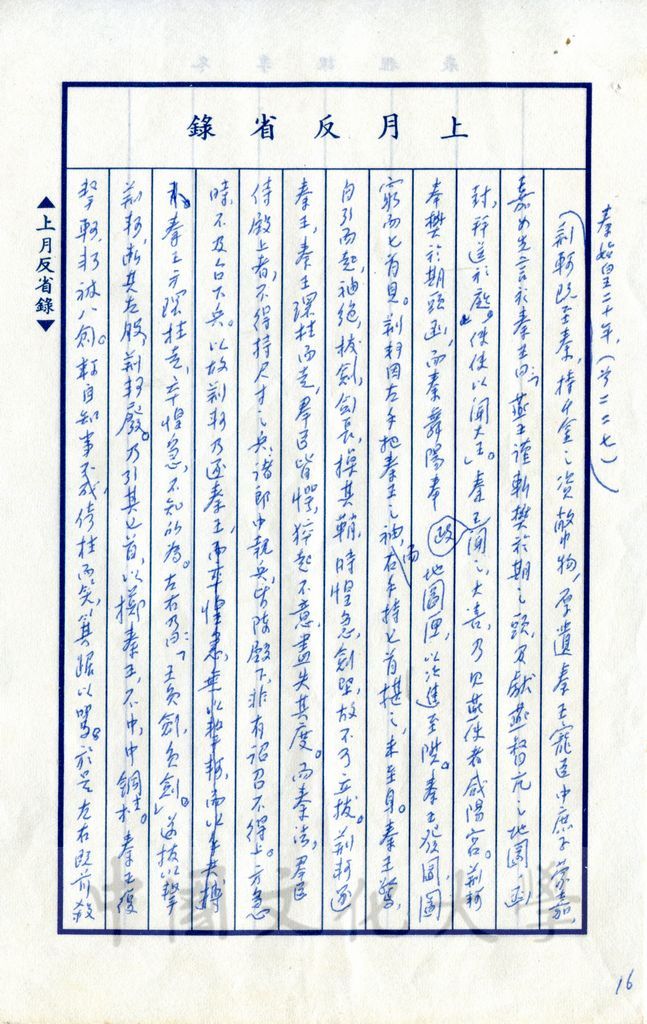 上月反省錄
秦始皇二十年,(公二二七)
(荊軻既至秦,持千金之資幣物,厚遺秦王寵臣中庶子蒙嘉,
嘉為先言於秦王曰:燕王謹斬樊於期之頭,及獻燕督亢之地圖,函
封,拜送於庭,使使以聞大王。」秦王聞之大喜,乃見燕使者咸陽宮。荊軻
奉樊於期頭函,而秦舞陽奉地圖匣,以次進至陛。秦王發圖,圖
窮而匕首見。荊軻因左手把秦王之袖,而右手持匕首揕之,未至身。秦王驚,
自引而起,袖絕,拔劍,劍長,操其鞘,時惶急,劍堅,故不可立拔。荊軻逐
秦王,秦王環柱而走,羣臣皆愕,猝起不意,盡失其度。而秦法,羣臣
侍殿上者,不得持尺寸之兵;諸郎中執兵,皆陳殿下,非有詔召不得上。方急
時,不及召下兵。以故荊軻乃逐秦王,而卒惶急,無以擊軻,而以手共搏
秦王方環柱走,卒惶急,不知所為。左右乃曰:「王負劍,負劍。」遂拔以擊
荊軻,斷其左股,荊軻廢。乃引其匕首,以擲秦王,不中,中銅柱。秦王復
擊軻,軻被八創。軻自知事不成,倚柱而笑,箕踞以罵。於是左右既前殺
政
▲上月反省錄▼
中國文化大學
16